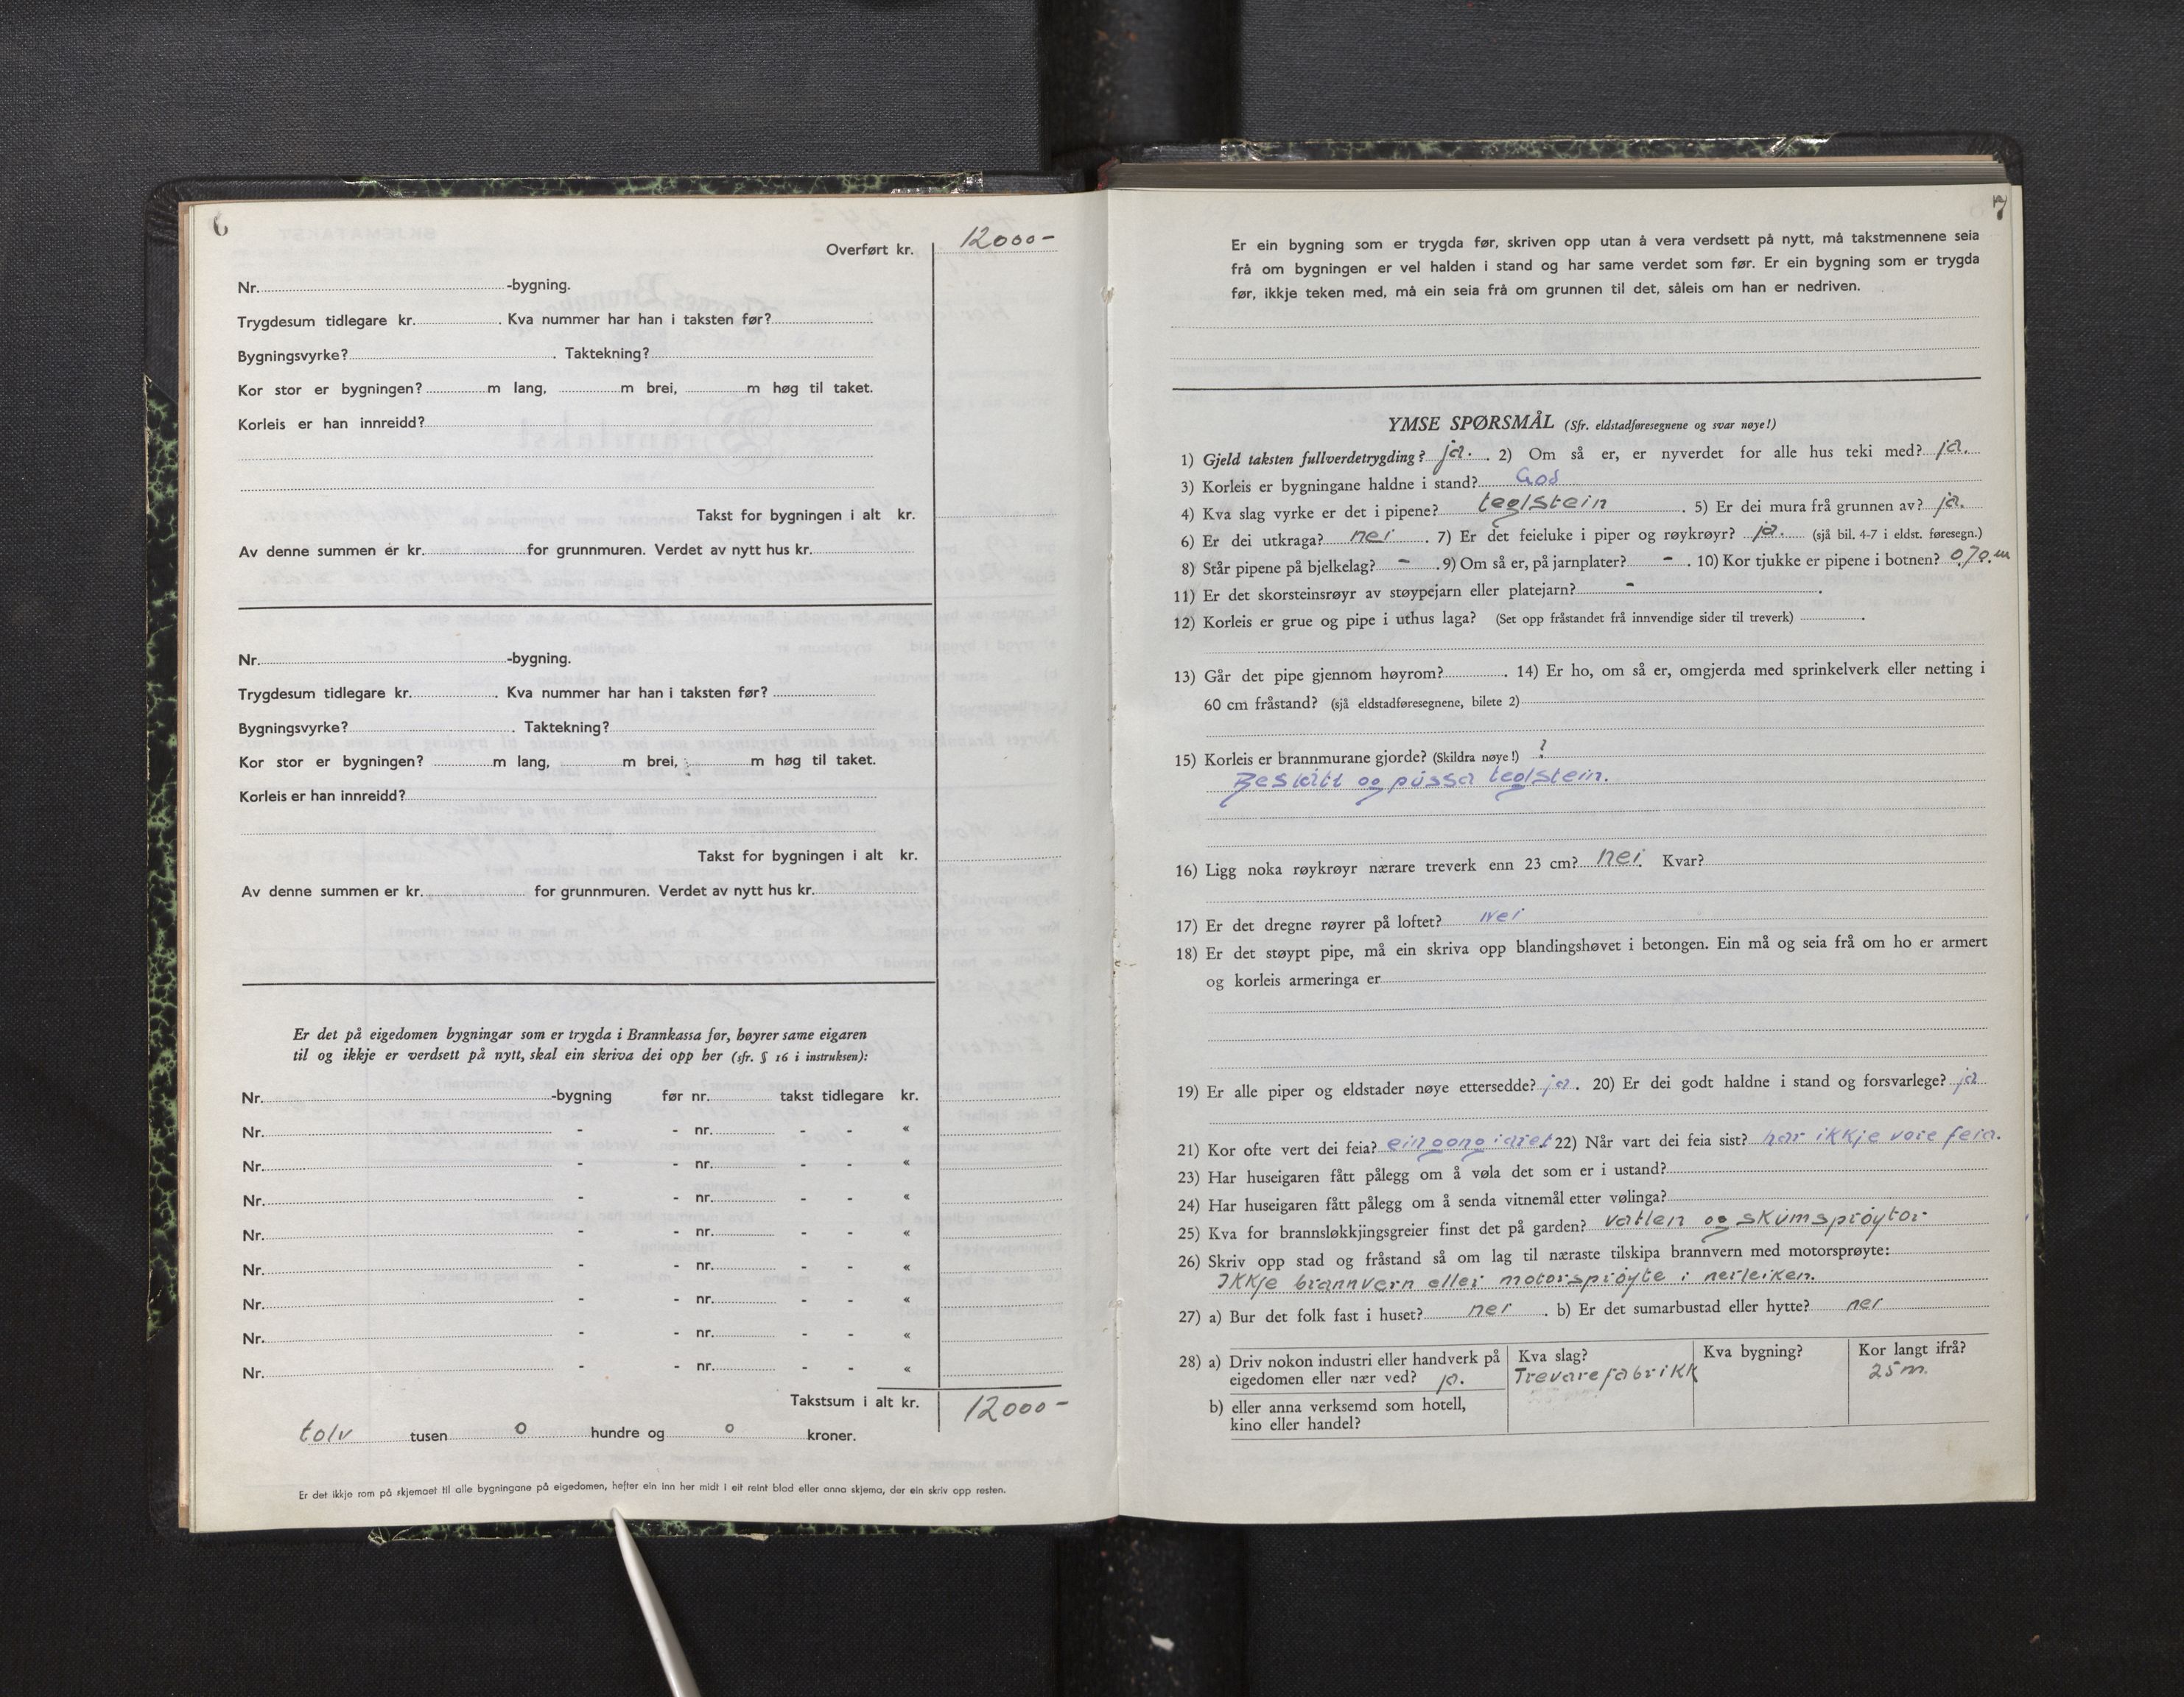 6
Overført kr. 12000-
Nr. -bygning.
Trygdesum tidlegare kr. . Kva nummer har han i taksten før?
Bygningsvyrke? . Taktekning?
Kor stor er bygningen? m lang, m brei, m høg til taket.
Korleis er han innreidd?
Takst for bygningen i alt kr.
Av denne summen er kr. for grunnmuren. Verdet av nytt hus kr.
Nr. -bygning.
Trygdesum tidlegare kr. . Kva nummer har han i taksten før?
Bygningsvyrke? . Taktekning?
Kor stor er bygningen? m lang, m brei, m høg til taket.
Korleis er han innreidd?
Takst for bygningen i alt kr.
Av denne summen er kr. for grunnmuren. Verdet av nytt hus kr.
Er det på eigedomen bygningar som er trygda i Brannkassa før, høyrer same eigaren
til og ikkje er verdsett på nytt, skal ein skriva dei opp her (sfr. § 16 i instruksen):
Nr. -bygning før nr. takst tidlegare kr.
Nr. - - nr. - - «
Nr. - - nr. - - «
Nr. - - nr. - - «
Nr. - - nr. - - «
Nr. - - nr. - - «
Nr. - - nr. - - «
Nr. - - nr. - - «
Nr. - - nr. - - «
Takstsum i alt kr. 12000-
tolv tusen 0 hundre og 0 kroner.
Er det ikkje rom på skjemaet til alle bygningane på eigedomen, hefter ein inn her midt i eit reint blad eller anna skjema, der ein skriv opp resten.
7
Er ein bygning som er trygda før, skriven opp utan å vera verdsett på nytt, må takstmennene seia
frå om bygningen er vel halden i stand og har same verdet som før. Er ein bygning som er trygda
før, ikkje teken med, må ein seia frå om grunnen til det, såleis om han er nedriven.
YMSE SPØRSMÅL (Sfr. eldstadføresegnene og svar nøye!)
1) Gjeld taksten fullverdetrygding? ja. . 2) Om så er, er nyverdet for alle hus teki med? ja.
3) Korleis er bygningane haldne i stand? God
4) Kva slag vyrke er det i pipene? teglstein . 5) Er dei mura frå grunnen av? ja.
6) Er dei utkraga? nei . 7) Er det feieluke i piper og røykrøyr? ja. (sjå bil. 4-7 i eldst. føresegn.)
8) Står pipene på bjelkelag? - . 9) Om så er, på jarnplater? - . 10) Kor tjukke er pipene i botnen? 0,70 m
11) Er det skorsteinsrøyr av støypejarn eller platejarn? - .
12) Korleis er grue og pipe i uthus laga? (Set opp fråstandet frå innvendige sider til treverk) .
13) Går det pipe gjennom høyrom? . 14) Er ho, om så er, omgjerda med sprinkelverk eller netting i
60 cm fråstand? (sjå eldstadføresegnene, bilete 2)
15) Korleis er brannmurane gjorde? (Skildra nøye!) ?
Beslått og pussa teglstein.
16) Ligg noka røykrøyr nærare treverk enn 23 cm? nei. Kvar?
17) Er det dregne røyrer på loftet? Nei
18) Er det støypt pipe, må ein skriva opp blandingshøvet i betongen. Ein må og seia frå om ho er armert
og korleis armeringa er
19) Er alle piper og eldstader nøye ettersedde? ja . 20) Er dei godt haldne i stand og forsvarlege? ja
21) Kor ofte vert dei feia? ein gong i året 22) Når vart dei feia sist? har ikkje vore feia.
23) Har huseigaren fått pålegg om å vøla det som er i ustand?
24) Har huseigaren fått pålegg om å senda vitnemål etter vølinga?
25) Kva for brannsløkkjingsgreier finst det på garden? vatten og skumsprøytor
26) Skriv opp stad og fråstand så om lag til næraste tilskipa brannvern med motorsprøyte:
Ikkje brannvern eller motorsprøyte i nerleiken.
27) a) Bur det folk fast i huset? nei . b) Er det sumarbustad eller hytte? nei
28) a) Driv nokon industri eller handverk på eigedomen eller nær ved? ja.
Kva slag? Trevarefabrikk
Kva bygning?
Kor langt ifrå? 25 m.
b) eller anna verksemd som hotell,
kino eller handel?